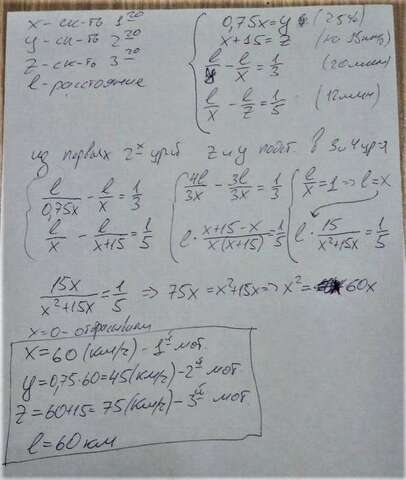 x - ск-ть 1го
y - ск-ть 2го
z - ск-ть 3го
l - расстояние
0,75x = y (25%)
x + 15 = z (на 15км/ч)
l/y - l/x = 1/3 (20мин)
l/x - l/z = 1/5 (12мин)
из первых 2х ур-й z и y подст. в 3 и 4 ур-я
l/0,75x - l/x = 1/3
l/x - l/(x+15) = 1/5
4l/3x - 3l/3x = 1/3
l · (x+15-x)/(x(x+15)) = 1/5
l/x = 1 => l = x
l · 15/(x²+15x) = 1/5
15x/(x²+15x) = 1/5 => 75x = x²+15x => x² = 60x
x=0 - отбрасываем
x = 60 (км/ч) - 1й мот.
y = 0,75·60 = 45 (км/ч) - 2й мот.
z = 60+15 = 75 (км/ч) - 3й мот.
l = 60 км